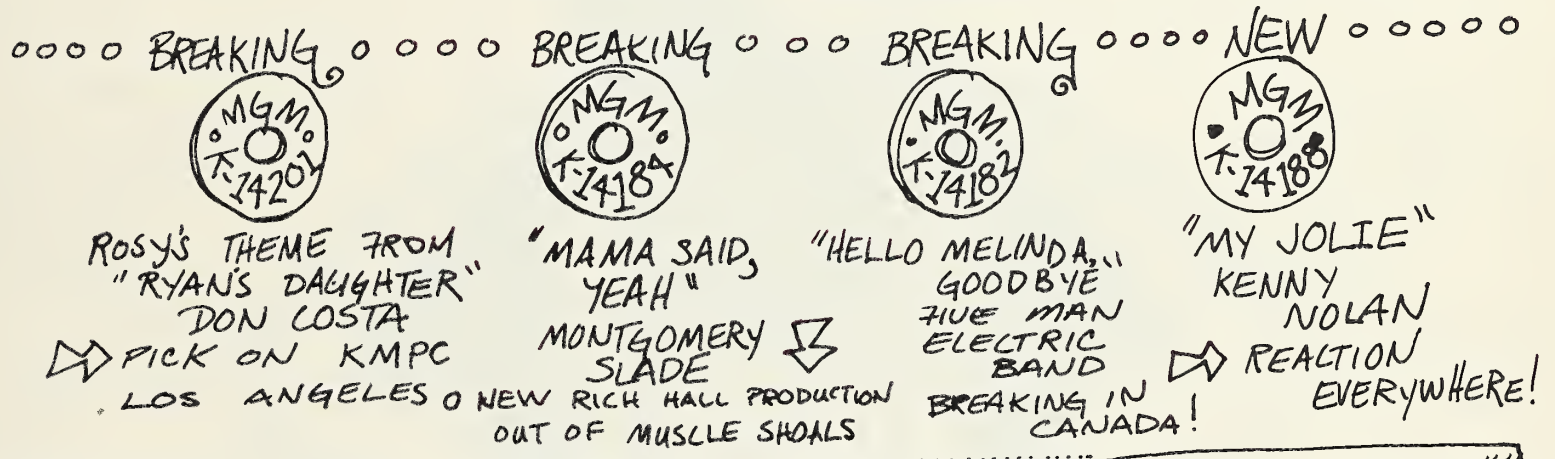 BREAKING
MGM
K-14201
ROSY'S THEME FROM
"RYAN'S DAUGHTER"
DON COSTA
PICK ON KMPC
LOS ANGELES
BREAKING
MGM
K-14184
"MAMA SAID,
YEAH"
MONTGOMERY
SLADE
NEW RICH HALL PRODUCTION
OUT OF MUSCLE SHOALS
BREAKING
MGM
K-14182
"HELLO MELINDA,
GOODBYE"
FIVE MAN
ELECTRIC
BAND
BREAKING IN
CANADA!
NEW
MGM
K-14188
"MY JOLIE"
KENNY
NOLAN
REACTION
EVERYWHERE!